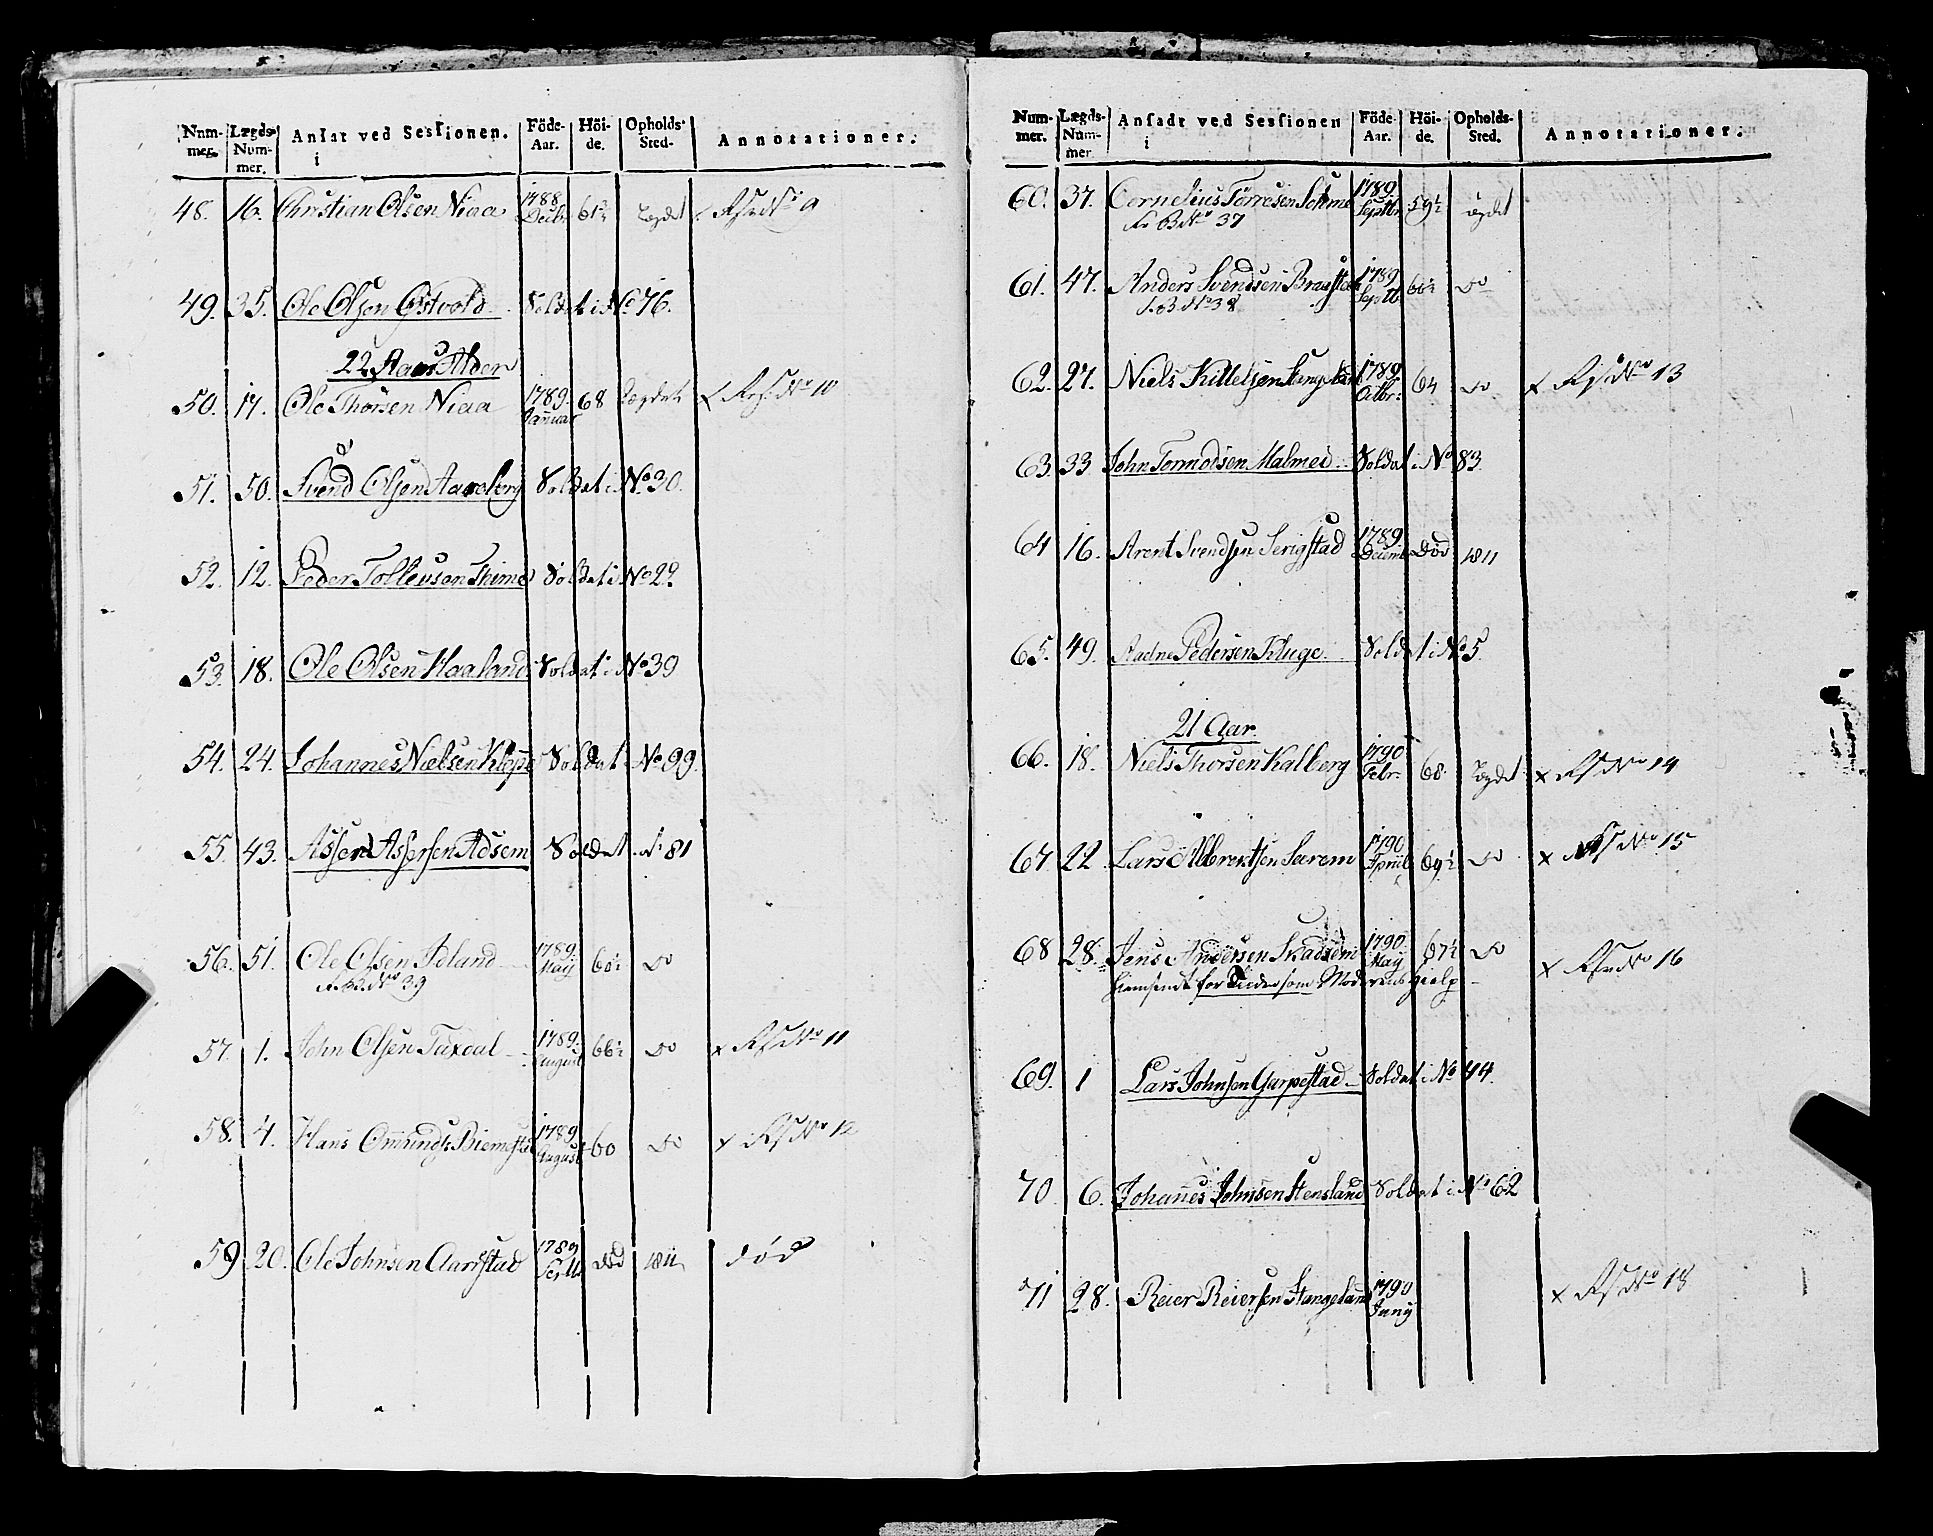 Num- Lægds- Ansat ved Sessionen. Föde- Höi- Opholds- Annotationer.
mer. Num- i Aar. de. Sted.
mer.
48. 16. Christian Olsen Niaa 1788 Decbr 61½ Lægdet № 9
49. 35. Ole Olsen Ostvold Soldat i No 76.
22 Aars Alder
50. 17. Ole Thorsen Niaa 1789. Januar 68 Lægdet № 10
51. 50. Svend Olsen Soldat i No. 30.
52. 12. Peder Tollevsen Thime Soldat i No 22
53. 18. Ole Olsen Haaland Soldat i No 39
54. 24. Johannes Nielsen Klepe Soldat No. 99.
55. 43. Asser Assersen Adsem Soldat 81
56. 51. Ole Olsen Idland 1789 May 60½ Do
No 39
57. 1. John Olsen Taxdal 1789. August 66½ Do x No 11
58. 4. Hans Omunds 1789 August 60 Do x No 12
59 20. Ole Johnsen Aarestad 1789 Septb død 1811 død
Num- Lægds- Ansadt ved Sessionen Föde- Höi- Opholds- Annotationer.
mer. Num- i Aar. de. Sted.
mer.
60. 37. Cornelius Torresen 1789 Septbr 59½ Lægdet
No 37
61. 47. Anders Svendsen 1789 Septb 60½ Do
No 38
62. 27. Niels Kittelsen 1789 Octbr. 64 Do x No 13
63. 33 John Tormodsen Malmei Soldat i No 83
64 16. Arent Svendsen Serigstad 1789 Decemb Død 1811
65. 49. Aadne Pedersen Kluge. Soldat i No 5.
21 Aar.
66. 18. Niels Thorsen Kalberg 1790 Febr. 68 Lægdet x No 14
67 22 Lars Albrektsen Sarem 1790 April 69½ Do x No 15
68 28. Jens Andersen Skadsem 1790 May 67½ Do x No 16
hiemsendt for Tiden som Moderens Hielp
69. 1 Lars Johnsen Garpestad Soldat i No 44.
70. 6. Johannes Johnsen Stensland Soldat i No 62
71 28. Reier Reiersen Stangeland 1790 Juny x No 18